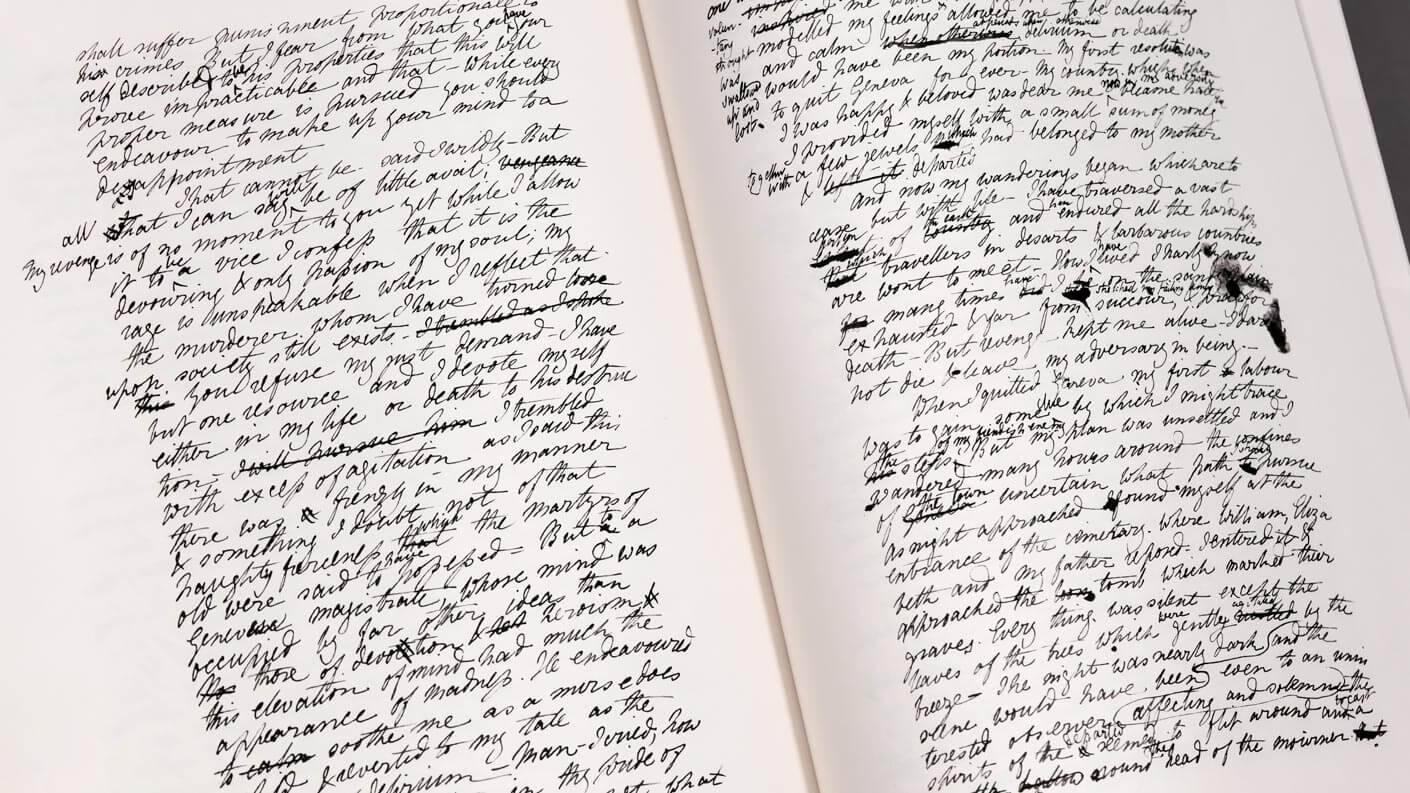 shall suffer punishment proportionate to
his crimes But I fear from what you have your
self described to be his properties that this will
prove impracticable and that – while every
proper measure is pursued you should
endeavour to make up your mind to a
disappointment
That cannot be – said I wildly – But
all that I can say will be of little avail; vengeance
My revenge is of no moment to you yet while I allow
it to be a vice I confess that it is the
devouring & only passion of my soul; my
rage is unspeakable when I reflect that
the murderer, whom I have turned loose
upon society still exists. I trembled as I spoke
this You refuse my just demand – I have
but one resource and I devote myself
either in my life or death to his destruc
tion – I will pursue him I trembled
with excess of agitation as I said this
there was a frenzy in my manner
& something I doubt not of that
haughty fierceness that which the martyrs of
old were said to have possessed – But to a
Genevese magistrate whose mind was
occupied by far other ideas than
those of devotion & heroism
this elevation of mind had much the
appearance of madness. He endeavoured
to calm soothe me as a nurse does
& reverted to my tale as the
delirium – Man – I cried, how
in thy pride of
what
me with
volun-
tary modelled my feelings & allowed me to be calculating
thought and calm when otherwise at periods when otherwise delirium or death
was would have been my portion – My first resolution was
swallowed to quit Geneva for ever – My country which when
up and I was happy & beloved was dear me now became hate
lost. I provided myself with a small sum of money
together with a few jewels which had belonged to my mother
& departed
And now my wanderings began which are to
cease but with life – I have traversed a vast
portion of the earth country and have endured all the hardships
which travellers in desarts & barbarous countries
are wont to meet. How I have lived I hardly know
many times have I on the sand
exhausted & far from succour, & prayed for
death – But revenge kept me alive – I dared
not die & leave my adversary in being. –
When I quitted Geneva my first labour
was to gain some clue by which I might trace
the steps of my fiendish enemy. But my plan was unsettled and I
wandered many hours around the confines
of the town uncertain what path to pursue
As night approached I found myself at the
entrance of the cimetary where William, Eliza
beth and my father reposed. I entered it &
approached the tomb which marked their
graves. Every thing was silent except the
leaves of the trees which were gently agitated by the
breeze – The night was nearly dark and the
scene would have been even to an unin
terested observer affecting and solemn the
spirits of the departed seemed to flit around and to cast a
round the head of the mourner